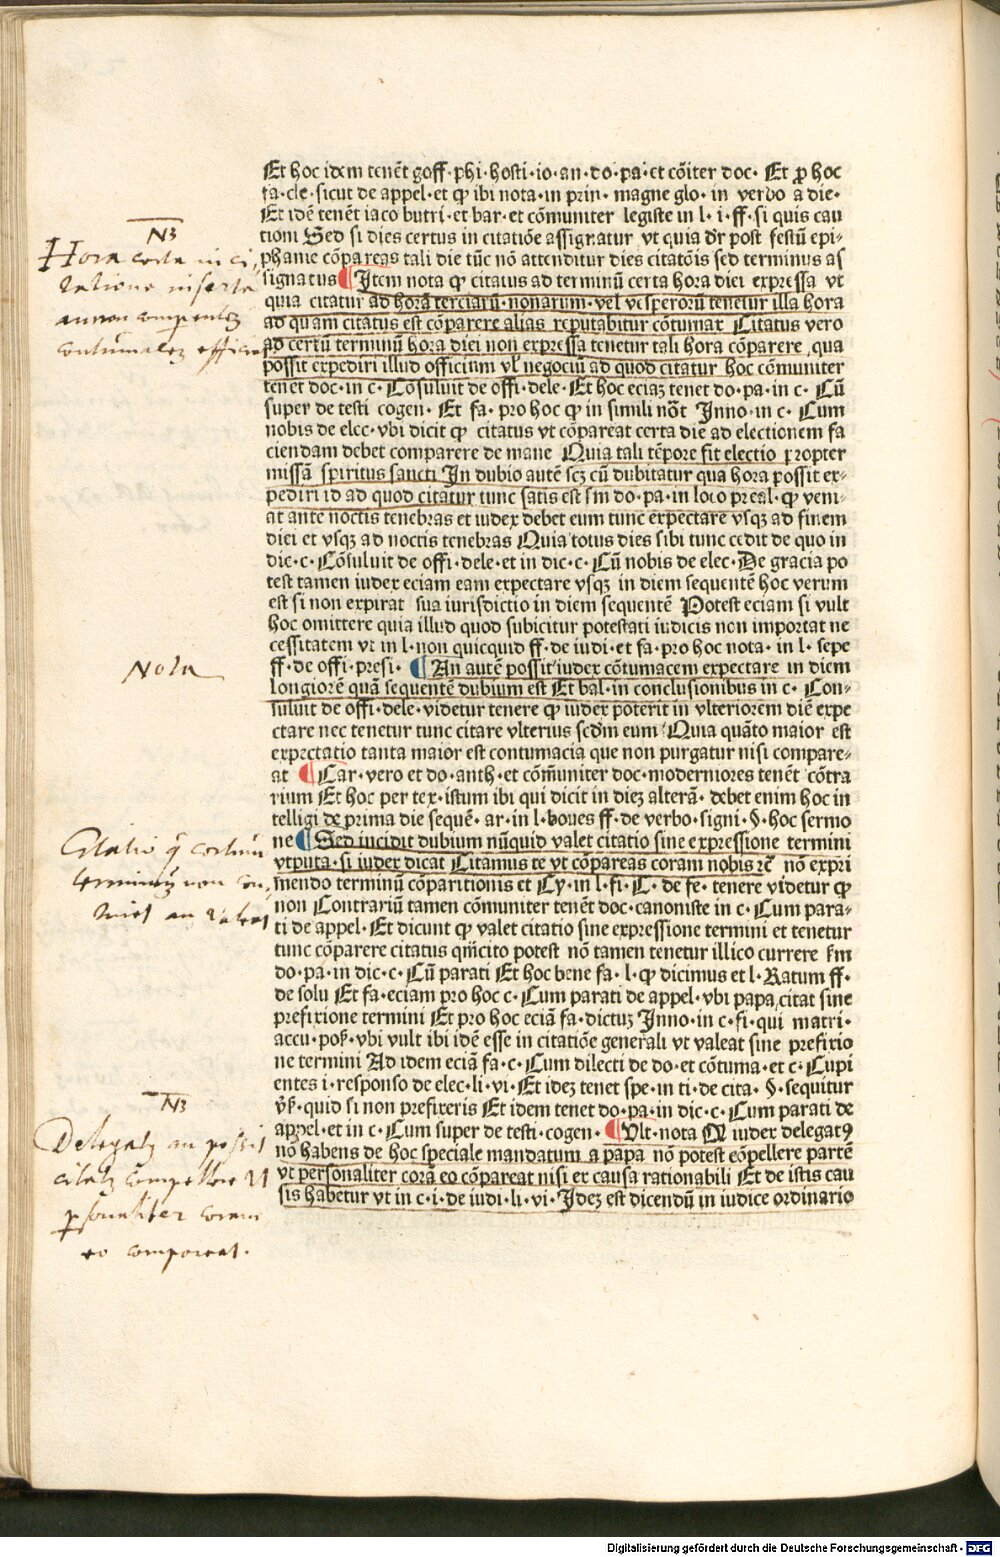 Et hoc idem tenēt goff· phi· hosti· io· an· do· pa· et cōiter doc· Et ꝓ hoc
fa· cle· sicut de appel· et ꝙ ibi nota· in prin· magne glo· in verbo a die·
Et idē tenēt iaco butri· et bar· et cōmuniter legiste in l· i· ff· si quis cau
tioni Sed si dies certus in citatiōe assignatur vt quia dr̄ post festū epi⸗
phanie cōpareas tali die tūc nō attenditur dies citatōis sed terminus as
signatus ¶ Item nota ꝙ citatus ad terminū certa hora diei expressa vt
quia citatur ad horā terciarū· nonarum· vel vesperorū tenetur illa hora
ad quam citatus est cōparere alias reputabitur cōtumax Citatus vero
ad certū terminū hora diei non expressa tenetur tali hora cōparere qua
possit expediri illud officium vl̓ negociū ad quod citatur hoc cōmuniter
tenet doc· in c· Cōsuluit de offi· dele· Et hoc eciaꝫ tenet do· pa· in c· Cū
super de testi cogen· Et fa· pro hoc ꝙ in simili nōt Inno· in c· Cum
nobis de elec· vbi dicit ꝙ citatus vt cōpareat certa die ad electionem fa
ciendam debet comparere de mane Quia tali tēpore fit electio propter
missā spiritus sancti In dubio autē scꝫ cū dubitatur qua hora possit ex⸗
pediri id ad quod citatur tunc satis est s̄m do· pa· in loco preal· ꝙ veni⸗
at ante noctis tenebras et iudex debet eum tunc expectare vsqꝫ ad finem
diei et vsqꝫ ad noctis tenebras Quia totus dies sibi tunc cedit de quo in
dic· c· Cōsuluit de offi· dele· et in dic· c· Cū nobis de elec· De gracia po
test tamen iudex eciam eam expectare vsqꝫ in diem sequentē hoc verum
est si non expirat sua iurisdictio in diem sequentē Potest eciam si vult
hoc omittere quia illud quod subicitur potestati iudicis non importat ne
cessitatem vt in l· non quicquid ff· de iudi· et fa· pro hoc nota· in l· sepe
ff· de offi· presi· ¶ An autē possit iudex cōtumacem expectare in diem
longiorē quā sequentē dubium est Et bal· in conclusionibus in c· Con⸗
suluit de offi· dele· videtur tenere ꝙ iudex poterit in vlteriorem diē expe
ctare nec tenetur tunc citare vlterius scd̄m eum Quia quāto maior est
expectatio tanta maior est contumacia que non purgatur nisi compare⸗
at ¶ Car· vero et do· anth· et cōm̄uniter doc· moderniores tenēt cōtra
rium Et hoc per tex· istum ibi qui dicit in dieꝫ alterā· debet enim hoc in
telligi de prima die sequē· ar· in l· boues ff· de verbo· signi· §· hoc sermo
ne ¶ Sed incidit dubium nūquid valet citatio sine expressione termini
vtputa· si iudex dicat Citamus te vt cōpareas coram nobis ⁊c̄ nō expri
mendo terminū cōparitionis et Cy· in l· fi· C· de fe· tenere videtur ꝙ
non Contrariū tamen cōmuniter tenēt doc· canoniste in c· Cum para⸗
ti de appel· Et dicunt ꝙ valet citatio sine expressione termini et tenetur
tunc cōparere citatus qm̄cito potest nō tamen tenetur illico currere s̄m
do· pa· in dic· c· Cū parati Et hoc bene fa· l· ꝙ dicimus et l· Ratum ff·
de solu Et fa· eciam pro hoc c· Cum parati de appel· vbi papa citat sine
prefixione termini Et pro hoc eciā fa· dictuꝫ Inno· in c· fi· qui matri·
accu· pos̄· vbi vult ibi idē esse in citatiōe generali vt valeat sine prefixio
ne termini Ad idem eciā fa· c· Cum dilecti de do· et cōtuma· et c· Cupi
entes i· responso de elec· li· vi· Et ideꝫ tenet spe· in ti· de cita· §· sequitur
v̄s̄· quid si non prefixeris Et idem tenet do· pa· in dic· c· Cum parati de
appel· et in c· Cum super de testi· cogen· ¶ Vlt· nota ꝙ iudex delegatꝰ
nō habens de hoc speciale mandatum a papa nō potest cōpellere partē
vt personaliter corā eo cōpareat nisi ex causa rationabili Et de istis cau
sis habetur vt in c· i· de iudi· li· vi· Ideꝫ est dicendū in iudice ordinario
NB
Hora certa in ci
tatione inserta
an non comparentes
contumaces efficiat
Nota
Citatio q̄ certum
terminum non con
tinet an valeat
NB
Delegatus an possit
citatum compellere ut
personaliter coram
eo compareat.
Digitalisierung gefördert durch die Deutsche Forschungsgemeinschaft - DFG